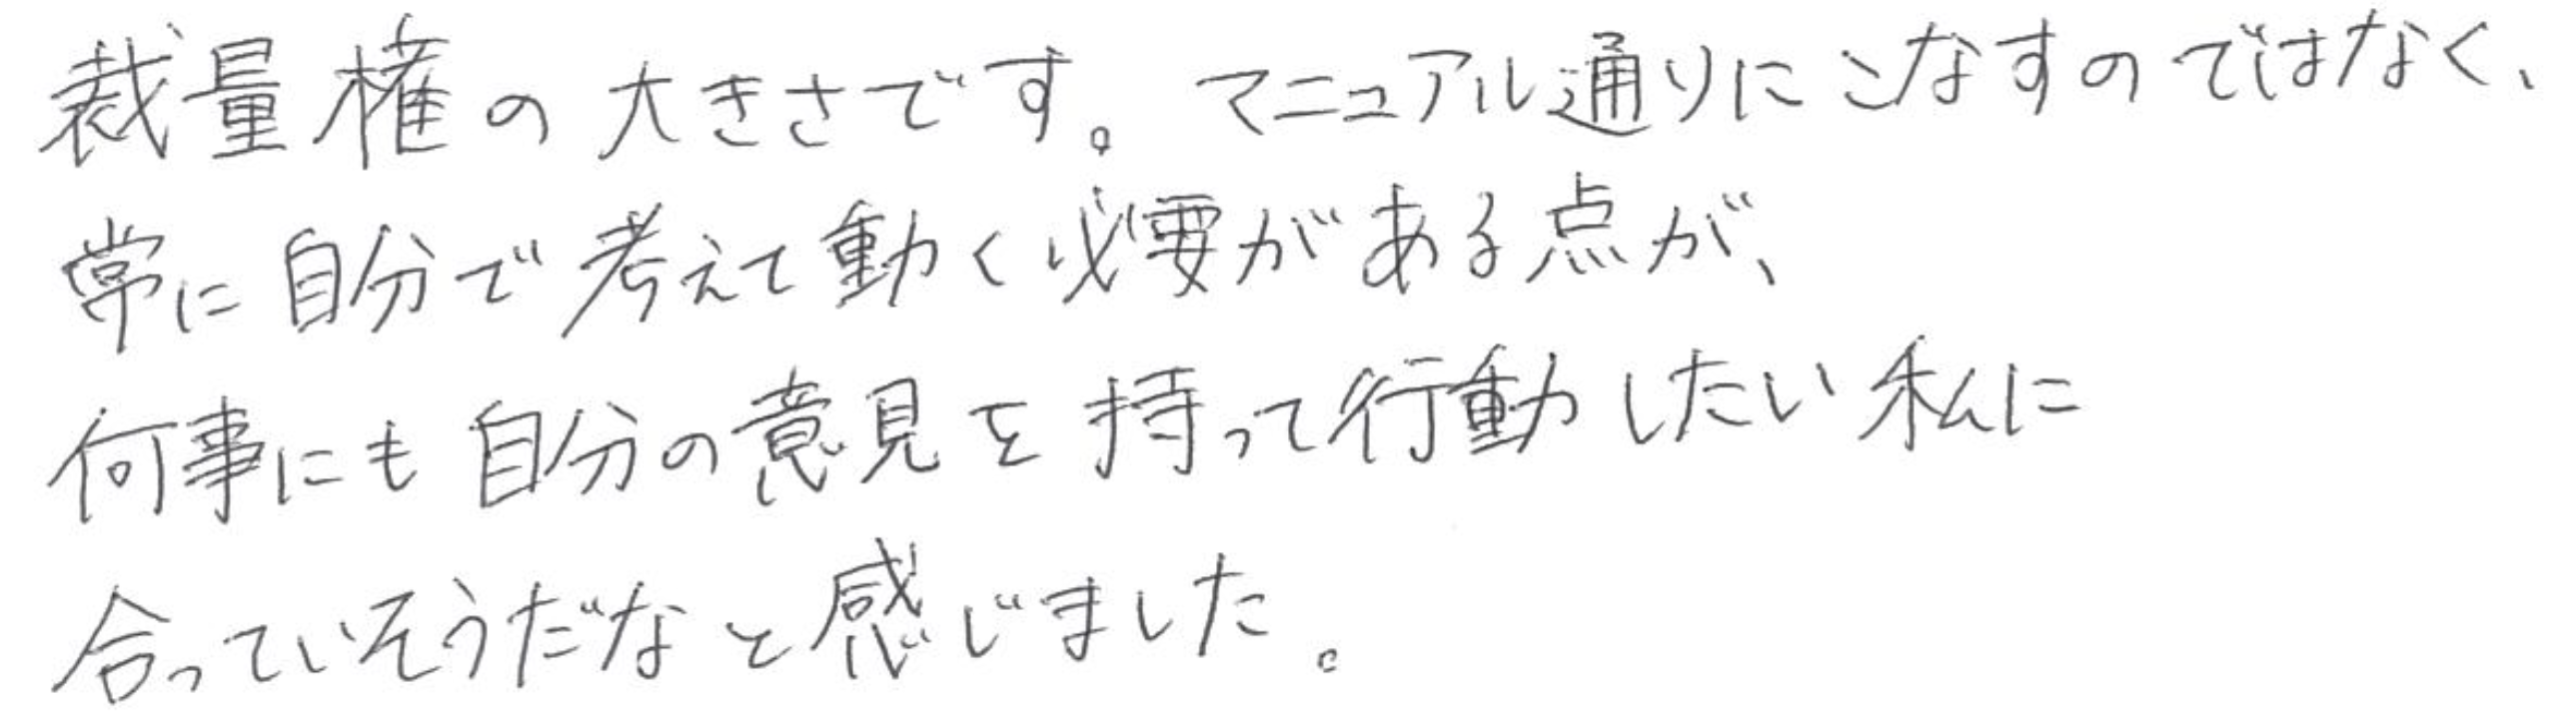 裁量権の大きさです。マニュアル通りにこなすのではなく、
常に自分で考えて動く必要がある点が、
何事にも自分の意見を持って行動したい私に
合っていそうだなと感じました。